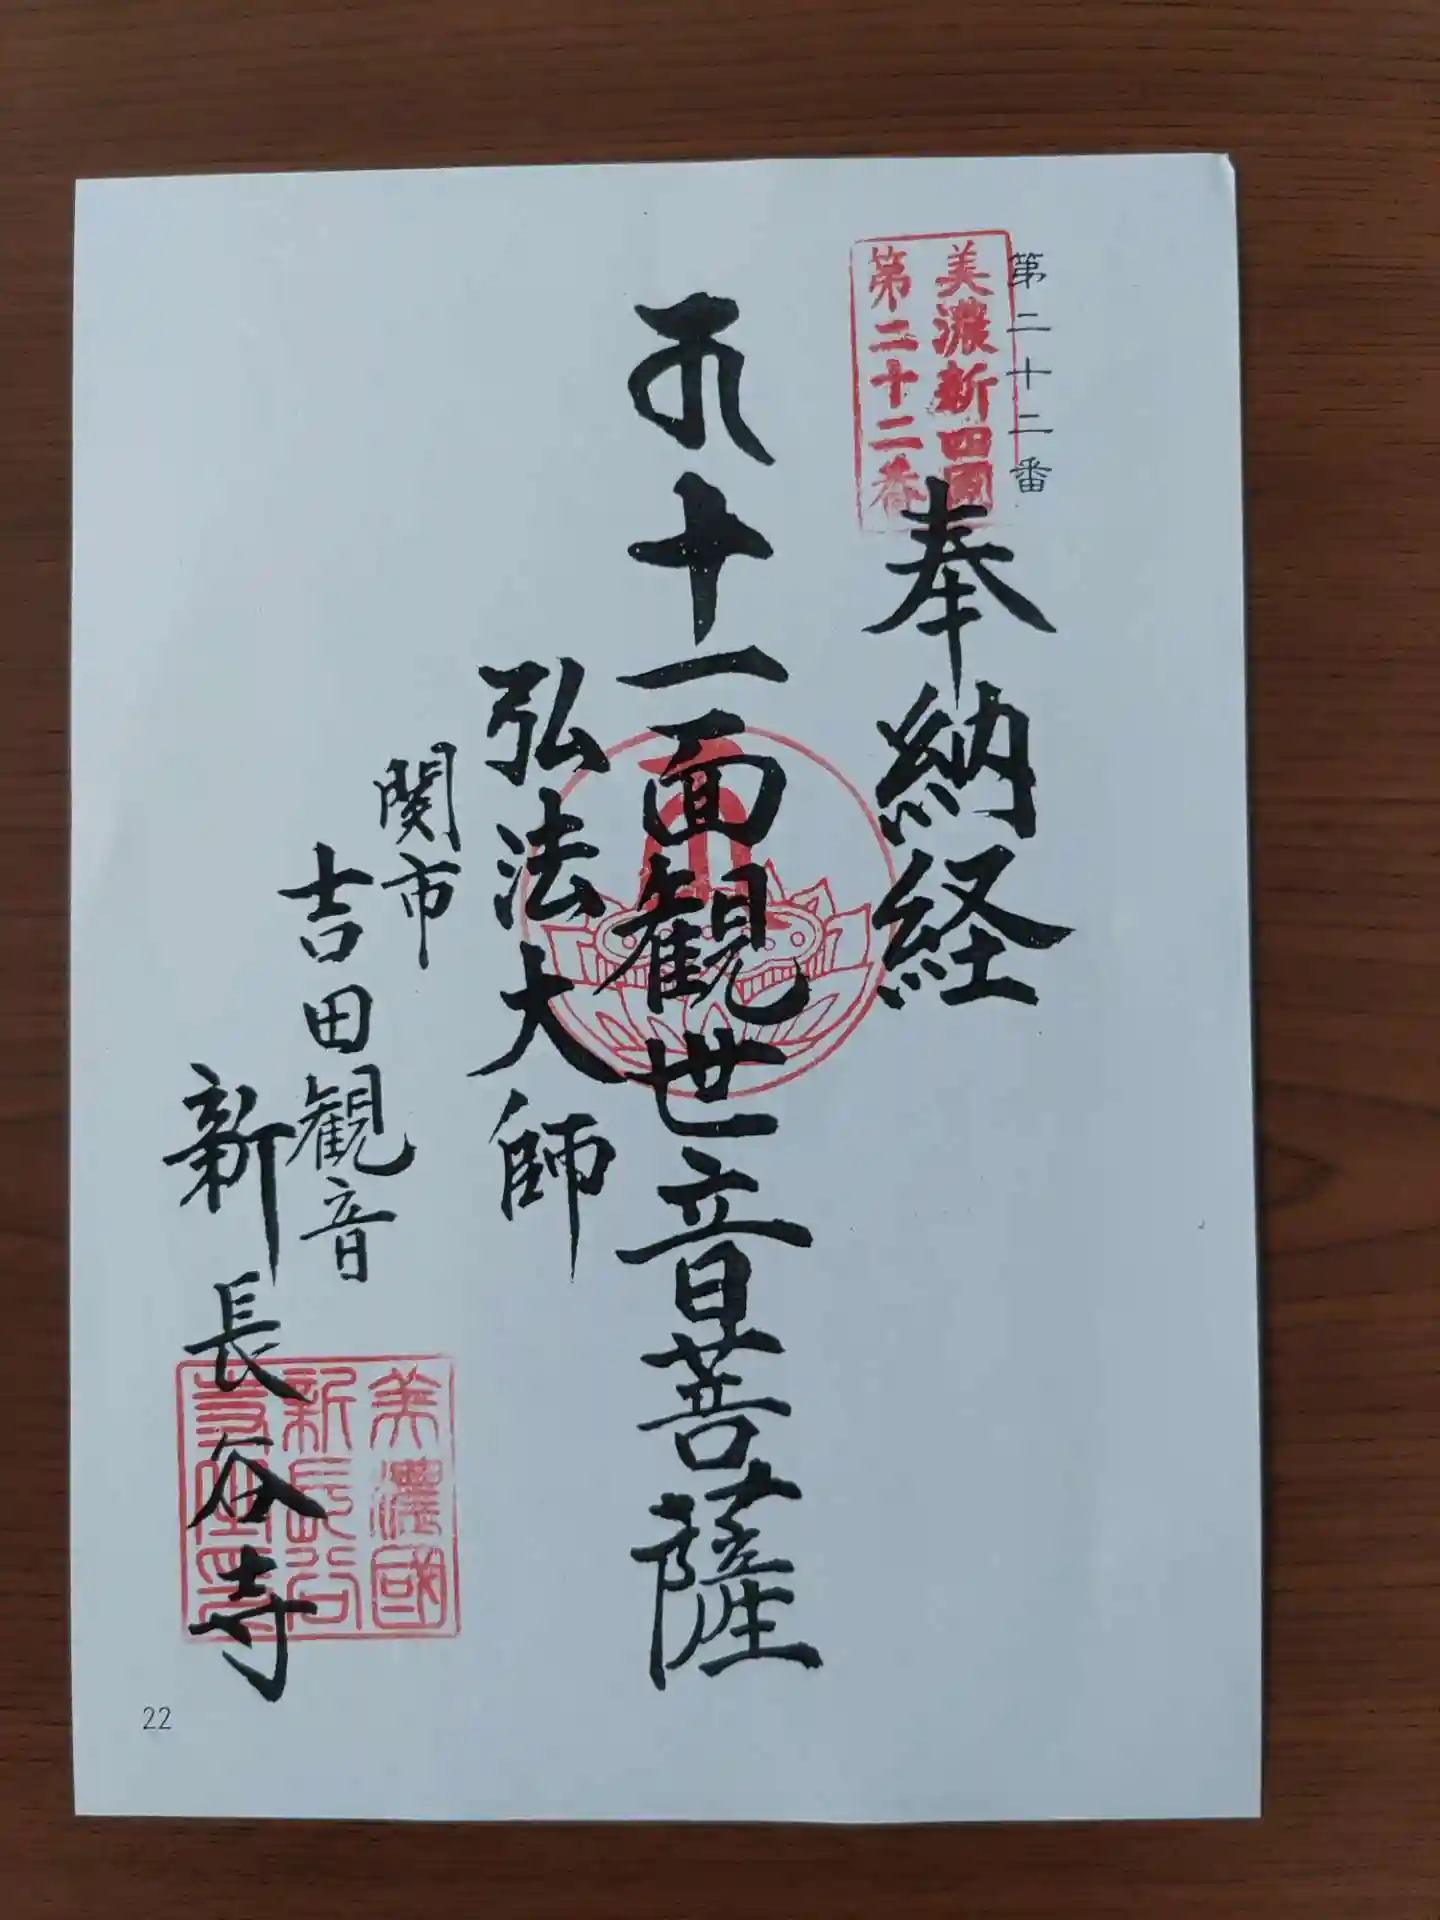 第二十二番
美濃新四國
第二十二番
奉納経
十一面観世音菩薩
弘法大師
関市
吉田観音
新長谷寺
美濃國
新長谷
寺
22